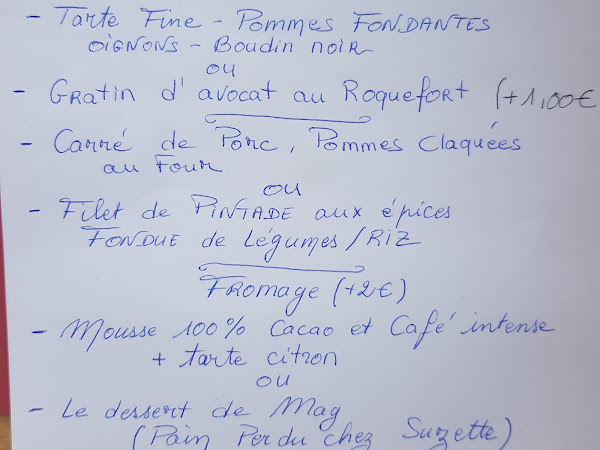 - Tarte Fine - Pommes FONDANTES
OIGNONS - Boudin noir
ou
- Gratin d'avocat au Roquefort (+1,00€
- Carré de Porc, Pommes Claquées
au Four
ou
- Filet de PINTADE aux épices
FONDUE de Légumes / RIZ
Fromage (+2€)
- Mousse 100% Cacao et Café intense
+ tarte citron
ou
- Le dessert de Mag
(Pain Perdu chez Suzette)